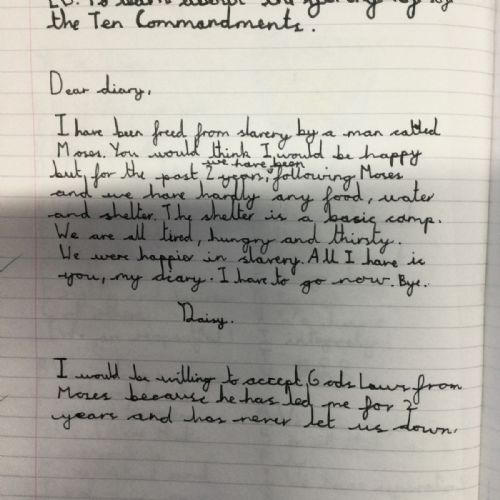 the Ten Commandments.
Dear diary,
I have been freed from slavery by a man called
Moses. You would think I would be happy
we have been
but, for the past 2 years, following Moses
and we have hardly any food, water
and shelter. The shelter is a basic camp.
We are all tired, hungry and thirsty.
We were happier in slavery. All I have is
you, my diary. I have to go now. Bye.
Daisy.
I would be willing to accept Gods Laws from
Moses because he has led me for 2
years and has never let us down.